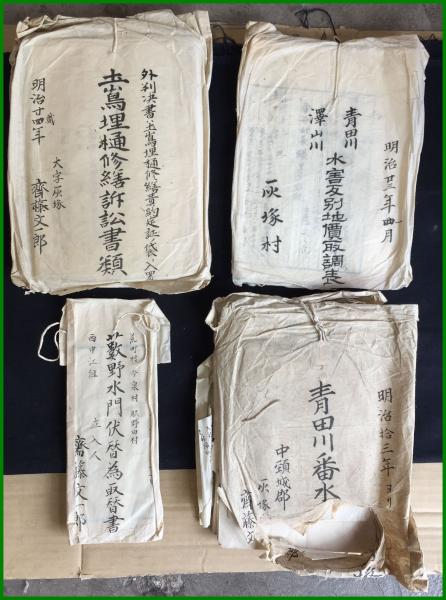 外判决書土嶌埋樋修繕費約定証袋入置
土嶌埋樋修繕訴訟書類
明治廿四年
歳
大字灰塚
齋藤文一郎
明治廿三年四月
青田川
澤山川
水害反別地價取調表
灰塚村
今泉村
西中江組
藪野水門伏替為取替書
立入人
齋藤文一郎
明治拾三年ヨリ
青田川番水
中頸城郡
灰塚
齋藤文